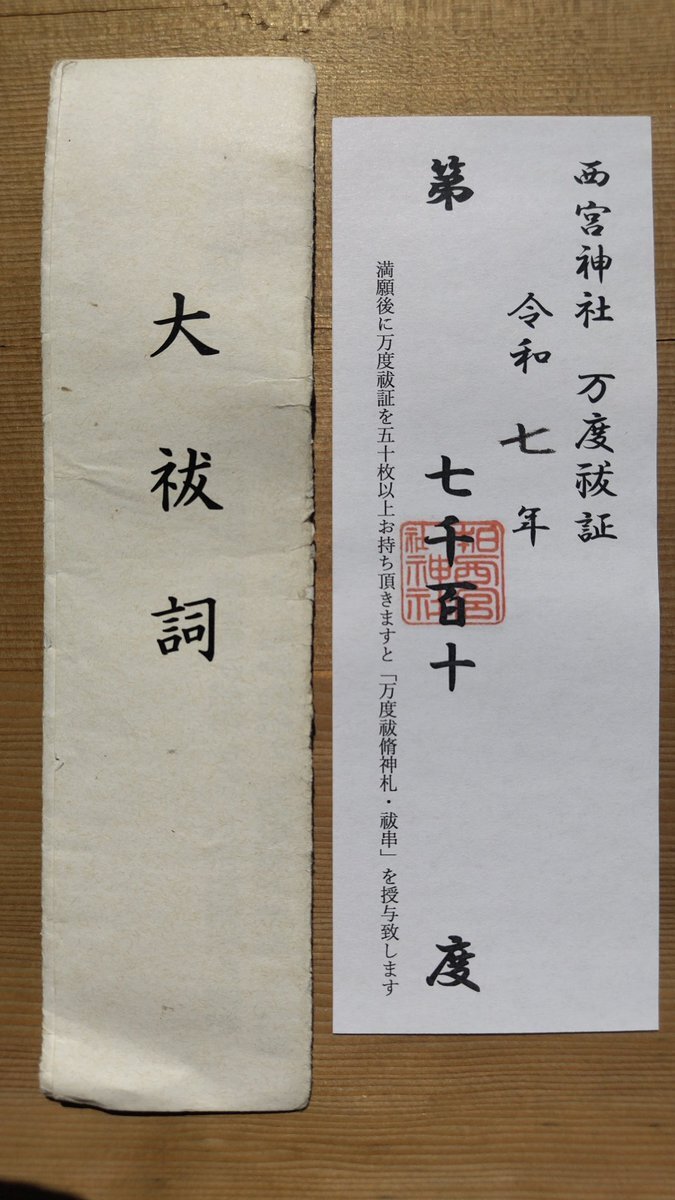 西宮神社 万度祓証
令和 七 年
第 七千百十 度
満願後に万度祓証を五十枚以上お持ち頂きますと「万度祓脩神札・祓串」を授与致します
大祓詞